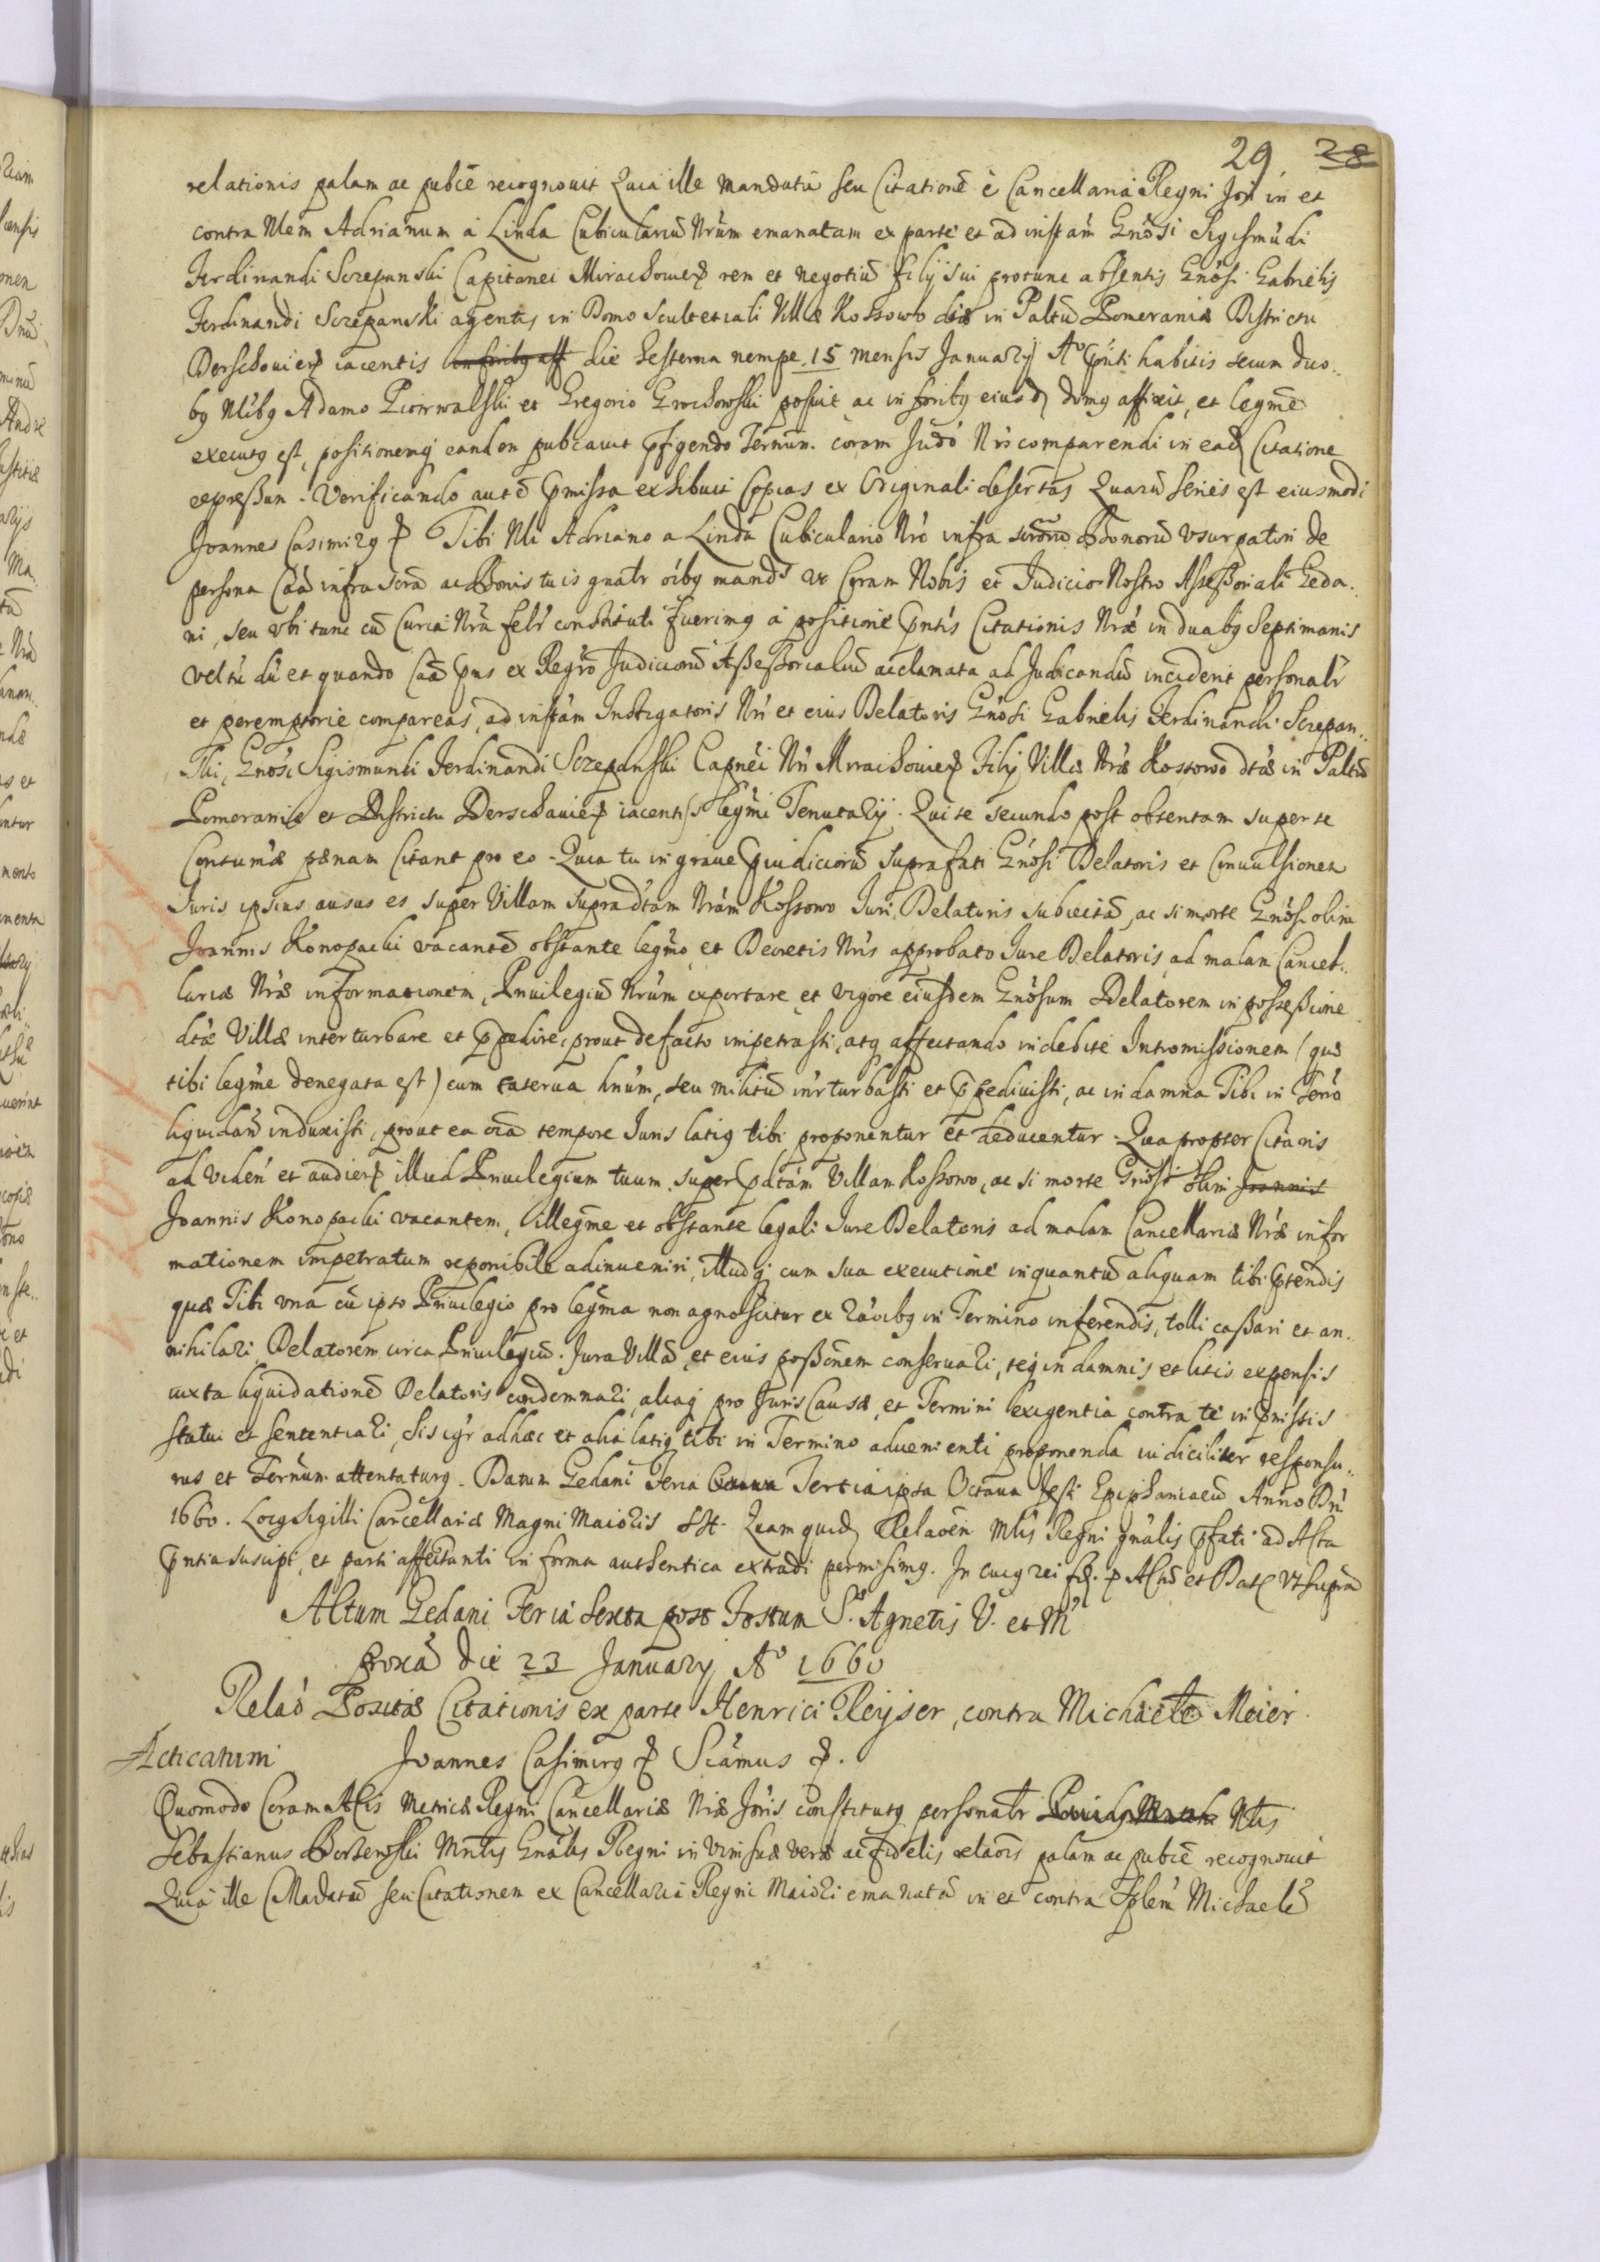 29 28
relationis palam ac pubce recognovit Quia ille Mandatu seu Citatione è Cancellaria Regni in et
contra Mlem Adrianum a Linda Cubiculariu Nrum emanatam ex parte et ad instam Gnosi Sigismudi
Ferdinandi Sczepanski Capitanei Mirachowien rem et negotiu filij sui protunc absentis Gnosi Gabrielis
Ferdinandi Sczepanski agentis in Domo Scultetiali Villæ Kossowo dtæ in Paltu Pomeraniæ Districtu
Derschovien iacentis in foribg aff die hesterna nempe 15 mensis January Ao pnti habitis secum duo..
bg Nlibg Adamo et Gregorio Grochowski posuit ac in foribg eiusd domg affixit, et legme
executg est, positionemq eandem pubcauit pfigendo Termnm. coram Judo Nro comparendi in ead Citatione
expressum. Verificando aute pmissa exhibuit Copias ex Originali desertas Quaru series est eiusmodi
Joannes Casimirg Tibi Nli Adriano a Linda Cubiculario Nro infra Bonoru usurpatori de
persona Caa infra scra ac Bonis tuis gnatr oibg mands ut Coram Nobis et Judicio Nostro Assessoriali Geda.
ni, seu ubi tunc cu Curia Nra felr constituti fuerimg a positione pntis Citationis Nræ in duabg Septimanis
vel tu du et quando Caa pns ex Regro Judicioru Assessorialiu acclamata ad Judicandu inciderit personatr
et peremptorie compareas, ad instam Instigatoris Nri et eius Delatoris Gnosi Gabrielis Ferdinandi Sczepan..
ski, Gnosi Sigismundi Ferdinandi Sczepanski Capnei Nri Mirachowien Filij Villæ Nræ Kossowo dtæ in Paltu
Pomeraniæ et Districtu Derschauien iacentis legmi Tenutarij. Qui te secundo post obtentam super te
Contumæ pænam Citant pro eo. Quia tu in graue piudicioru suprafati Gnosi Delatoris et Convulsionem
Juris ipsius ausus es super Villam supradtam Nram Kossowo Juri Delatoris subiecta, ac si morte Gnosi olim
Joannis Konopacki vacante obstante legmo et Decretis Nris approbato Jure Delatoris ad malam Cancel..
lariæ Nræ informationem, Privilegiu Nrum exportare et vigore eiusdem Gnosum Delatorem in possessione
dtæ Villæ inter turbare et ppedire, prout defacto impetrasti, atq affectando indebite Intromissionem (quæ
tibi legme denegata est) cum caterva hnum, seu militu inrturbasti et ppedivisti, ac in damna Tibi in Termo
liquidan induxisti, prout ea oia tempore Juris latig tibi proponentur et deducentur. Quapropter Citaris
ad viden et audien illud Privilegium tuum super pdtam Villam Kossowo, ac si morte Gnosi olim Joannis
Joannis Konopacki vacantem, illegme et obstante legali Jure Delatoris ad malam Cancellariæ Nræ infor
mationem impetratum reponibile adinveniri, illudq cum sua executione inquantu aliquam tibi ptendis
quæ Tibi una cu ipso Privilegio pro legma non agnoscitur ex raoibg in Termino inferendis, tolli cassari et an..
nihilari Delatorem circa Privilegiu. Jura Villa, et eius possonem conservari, teq in damnis et litis expensis
iuxta liquidatione Delatoris condemnari, aliaq pro Juris Causæ et Termini exigentia contra te in pmissis
statui et sententiari, Sis igr adhæc et alia latig tibi in Termino advenienti proponenda iudicialiter responsu..
rus et Termnm attentaturg. Datum Gedani Feria Tertia ipsa Octava Festi Epiphaniaru Anno Dni
1660. Locg Sigilli Cancellariæ Magni Maioris Quamquid Relaoen Mlis Regni gnalis pfati ad Acta
pntia suscipi, et parti affectanti in forma authentica extradi permisimg. In cuig rei f. p Actu et Dat ut supra
Actum Gedani Feria Sexta post Festum S. Agnetis V. et M
proxa die 23 January Ao 1660
Relao Positæ Citationis ex parte Henrici Reyser, contra Michaele Meier.
Acticatum Joannes Casimirg Sicamus
Quomodo Coram Actis Metricæ Regni Cancellariæ Nræ Joris constitutg personatr Nlis
Sebastianus Mntis Gnalis Regni in vim suæ veræ ac fidelis relaois palam ac pubce recognovit
Quia ille Madatu seu Citationem ex Cancellaria Regni Maiori emanata in et contra Michaele